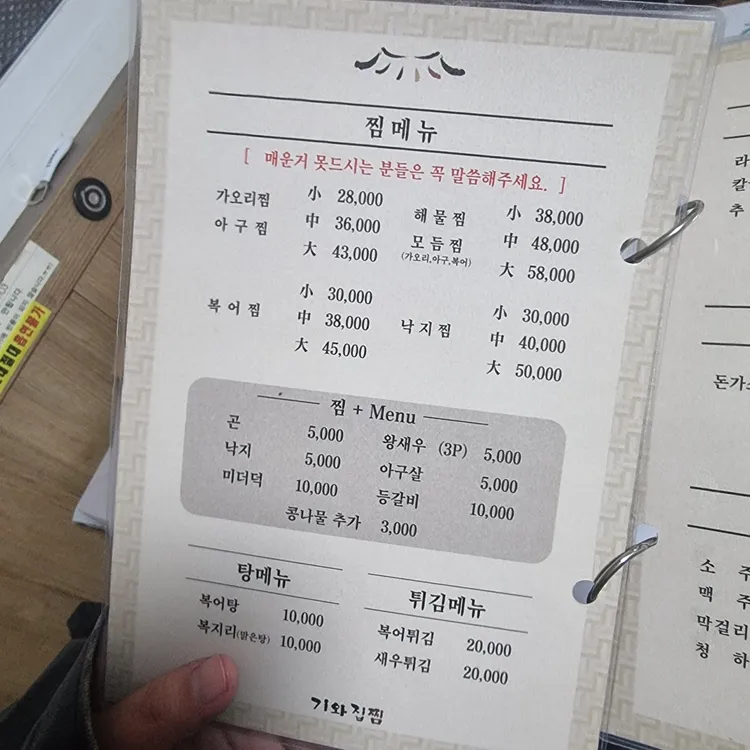 찜메뉴
[ 매운거 못드시는 분들은 꼭 말씀해주세요. ]
가오리찜 小 28,000
아구찜 中 36,000
大 43,000
해물찜 小 38,000
모듬찜 中 48,000
(가오리,아구,복어)
大 58,000
小 30,000
복어찜 中 38,000
大 45,000
小 30,000
낙지찜 中 40,000
大 50,000
찜 + Menu
곤 5,000
낙지 5,000
미더덕 10,000
왕새우 (3P) 5,000
아구살 5,000
등갈비 10,000
콩나물 추가 3,000
탕메뉴
복어탕 10,000
복지리(맑은탕) 10,000
튀김메뉴
복어튀김 20,000
새우튀김 20,000
기와집찜
라
칼
추
돈가
소 주
맥 주
막걸리
청 하